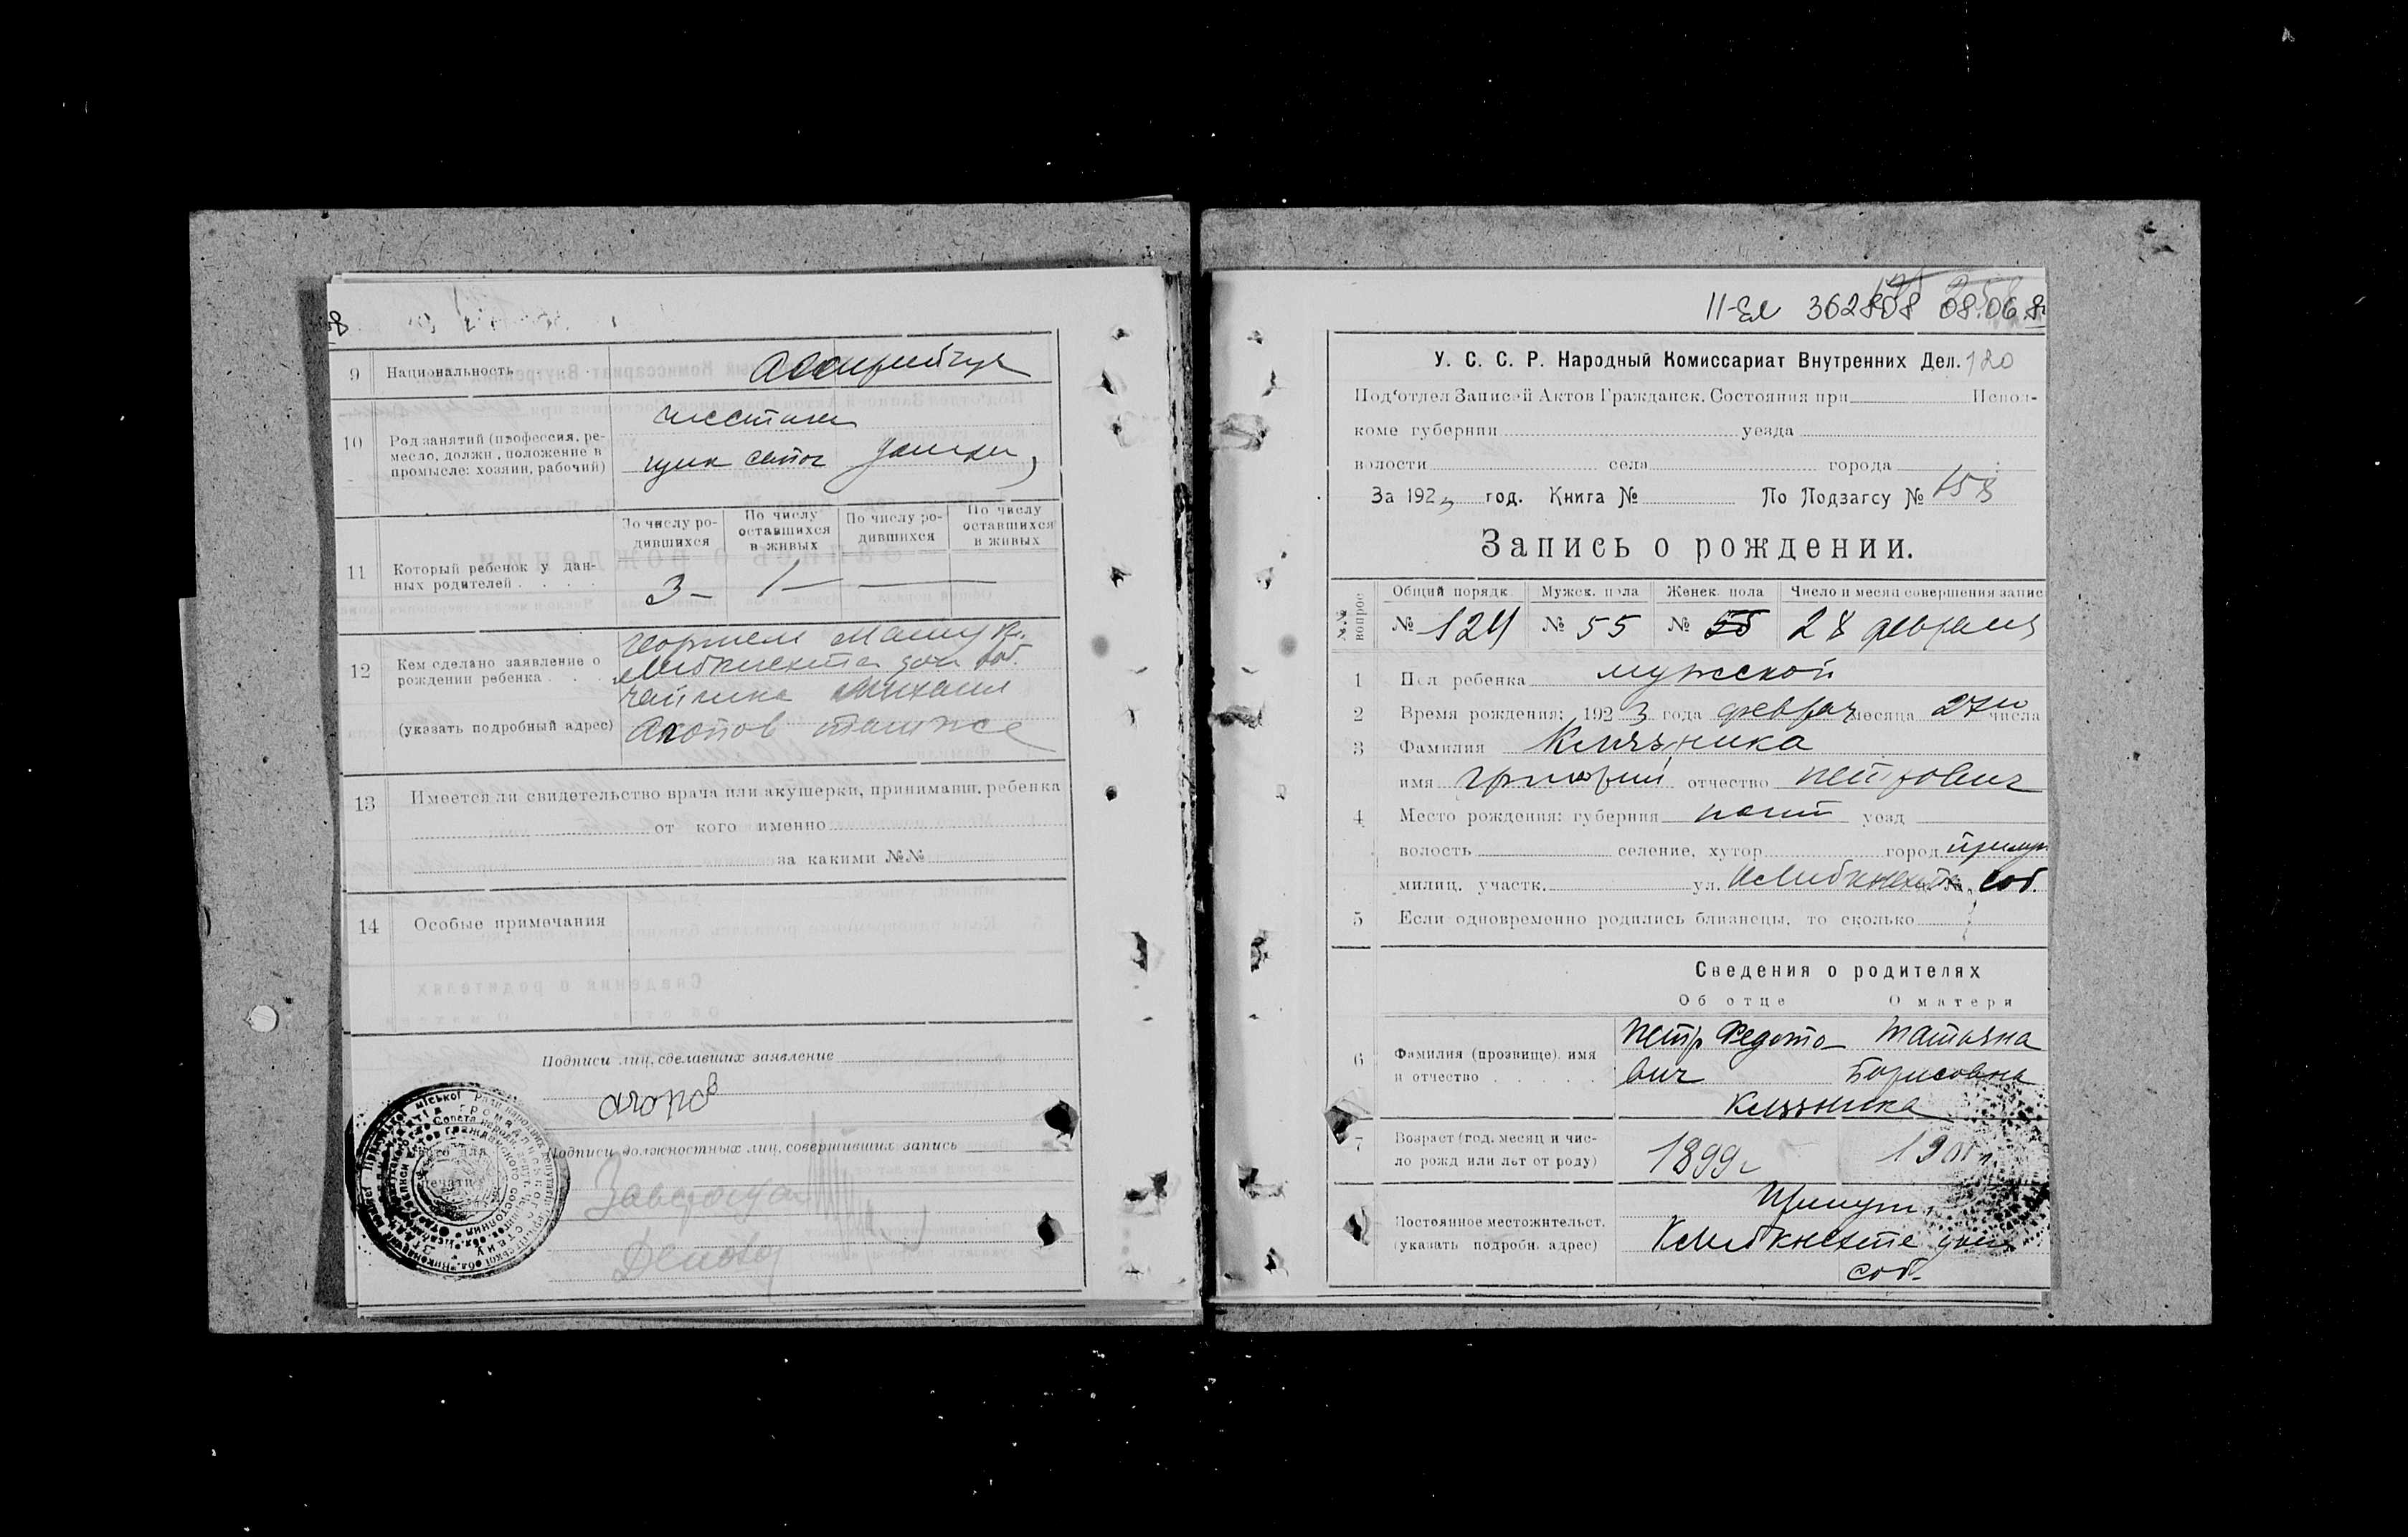 9 Национальность Ассирийцы
10 Род занятий (профессия, ре-
месло, должн., положение в
промысле: хозяин, рабочий)
чистильщик сапог
По числу ро-
дившихся
По числу
оставшихся
в живых
По числу ро-
дившихся
По числу
оставшихся
в живых
11 Который ребенок у дан-
ных родителей
3- 1-
12 Кем сделано заявление о
рождении ребенка
(указать подробный адрес)
К. Либкнехта дом соб.
Михаил
Акопов там же
13 Имеется ли свидетельство врача или акушерки, принимавш. ребенка
от кого именно
за какими №№
14 Особые примечания
Подписи лиц, сделавших заявление
Подписи должностных лиц, совершивших запись
Заверяющий
11-Ел 362808 08.06.8
У. С. С. Р. Народный Комиссариат Внутренних Дел. 120
Под'отдел Записей Актов Гражданск. Состояния при Испол-
коме губернии уезда
волости села города
За 1923 год. Книга № По Подзагсу № 158
Запись о рождении.
№№ вопрос
Общий порядк. Мужск. пола Женск. пола Число и месяц совершения запис
№ 124 № 55 № 55 28 февраля
1 Пол ребенка мужской
2 Время рождения: 1923 года феврал месяца 27го числа
3 Фамилия Княжника
имя Григорий отчество Петрович
4 Место рождения: губерния уезд
волость селение, хутор город Прилук
милиц. участк. ул. К Либкнехта соб.
5 Если одновременно родились близнецы, то сколько
Сведения о родителях
Об отце О матери
6 Фамилия (прозвище) имя
и отчество
Петр Федото- Татьяна
вич Борисовна
Княжника
7 Возраст (год, месяц и чис-
ло рожд. или лет от роду)
1899г 1901г.
Постоянное местожительст.
(указать подробн. адрес)
Прилуки
К Либкнехта дом
соб.